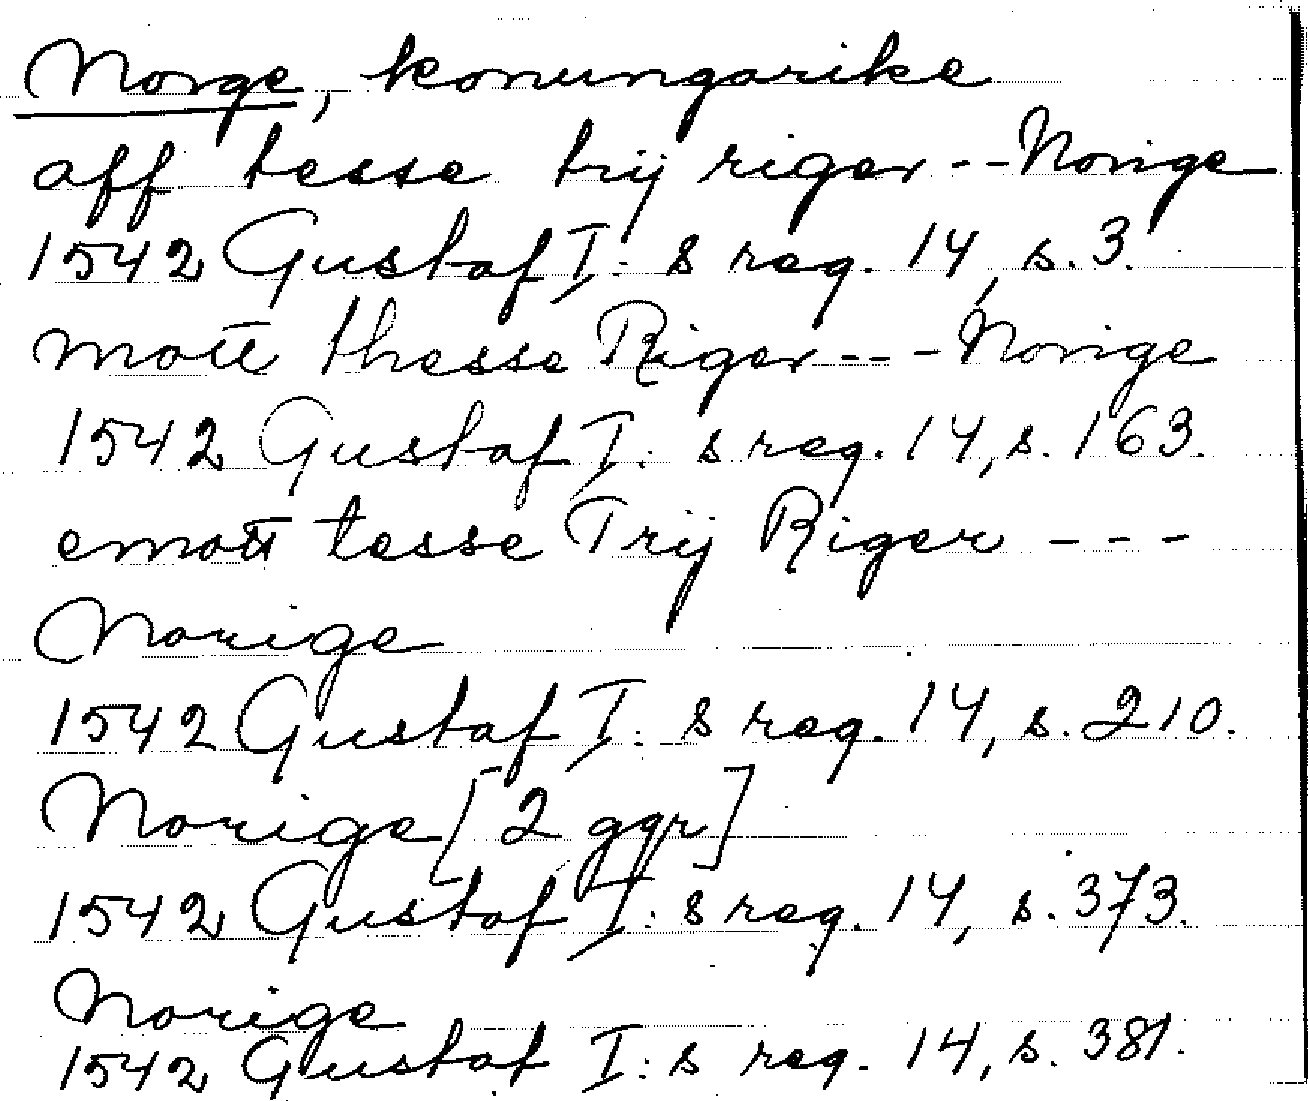 Norge, konungarike
aff tesse trij riger -- Norige
1542 Gustaf I: s reg. 14, s. 3.
mott thesse Riger --- Norige
1542 Gustaf I: s reg. 14, s. 163.
emott tesse Trij Riger ---
Norige
1542 Gustaf I: s reg. 14, s. 210.
Norige [2 ggr]
1542 Gustaf I: s reg. 14, s. 373.
Norige
1542 Gustaf I: s reg. 14, s. 381.